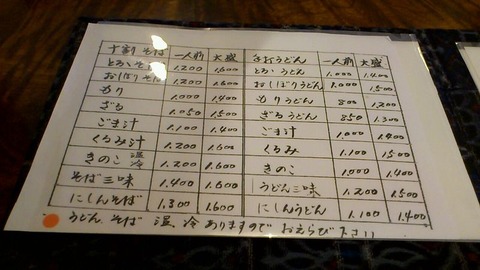 十割そば 一人前 大盛 うどん 一人前 大盛
とろろそば 1.200 1.600 とろろうどん 1.000 1.400
おしぼりそば 1.200 1.600 おしぼりうどん 1.000 1.500
もり 1.000 1.400 もりうどん 800 1.200
ざる 1.050 1.500 ざるうどん 850 1.300
ごま汁 1.100 1.400 ごま汁 1.000 1.400
くるみ汁 1.200 1.600 くるみ 1.100 1.500
きのこ 温冷 1.200 1.600 きのこ 1.000 1.400
そば三味 1.400 1.600 うどん三味 1.200 1.500
にしんそば 1.300 1.600 にしんうどん 1.100 1.400
うどん、そば 温、冷 ありますので おえらび下さい